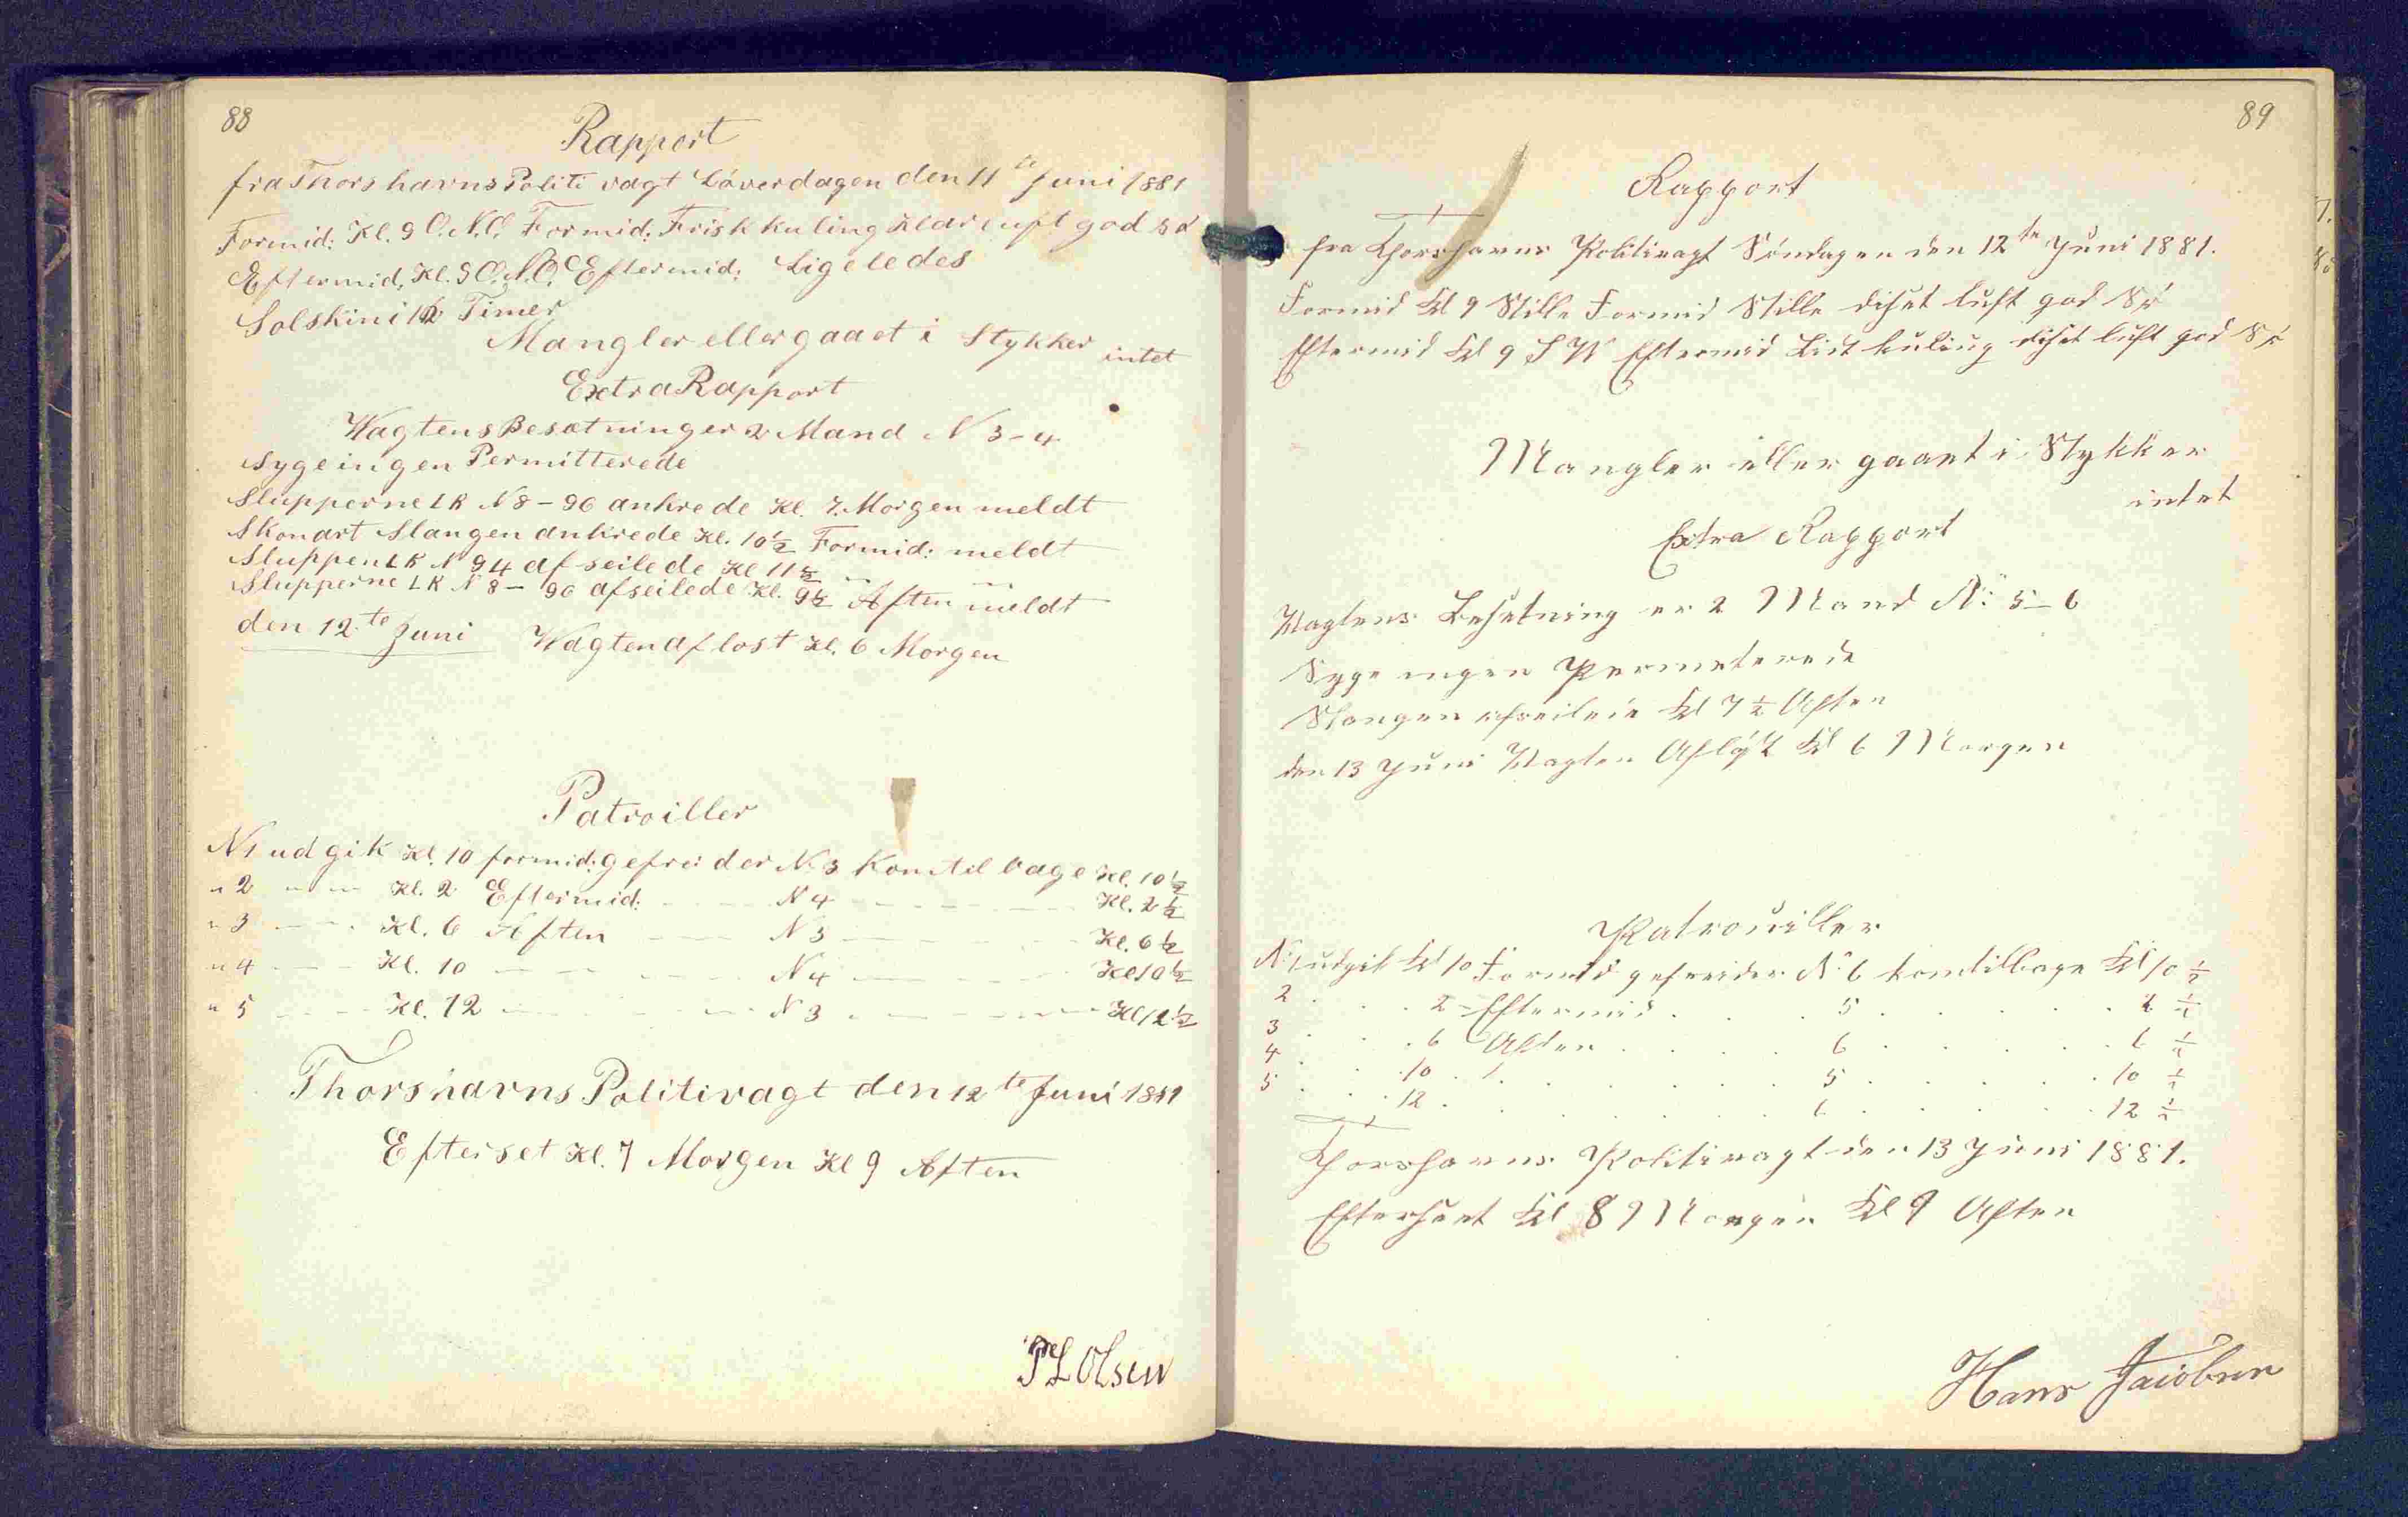 88
Rapport
fra Thorshavns Politi vagt Löverdagen den 11te Juni 1881
Formid: Kl. 9 O.N.O. Formid: Frisk kuling klar luft god sö
Eftermid, Kl. 9 O.N.O. Eftermid: Ligeledes
Solskin i 12 Timer
Mangler eller gaaet i Stykker intet
Extra Rapport
Wagtens Besætning er 2 Mand N 3-4
Syge ingen Permitterede
Slupperne LK N 8 - 96 ankrede Kl. 7. Morgen meldt
Skonart Slangen ankrede Kl. 10½ Formid: meldt
Sluppen LK N 94 afseilede Kl 11½ " "
Slupperne LK N 8 - 96 afseilede Kl. 9½ Aften meldt
den 12.te Juni Wagten aflost Kl. 6 Morgen
Patroiller
N 1 udgik Kl. 10 formid: gefreider N. 3 Kom tilbage Kl. 10½
" 2 " " Kl. 2 Eftermid: N 4 Kl. 2½
" 3 Kl. 6 Aften N 3 Kl. 6½
" 4 Kl. 10 N 4 Kl 10½
" 5 Kl. 12 N 3 Kl 12½
Thorshavns Politivagt den 12te Juni 1881
Efterset Kl. 7 Morgen Kl 9 Aften
Olsen
89
Rapport
fra Thorshavns Politivagt Söndagen den 12te Juni 1881.
Formid Kl 9 Stille Formid Stille diset luft god Sö
Eftermid Kl 9 S W Eftermid List kuling diset luft god Sö
Mangler eller gaaet i Stykker
intet
Extra Rapport
Wagtens Besetning er 2 Mand No 5-6
Syge ingen Permeterede
Slangen afseilede Kl 7½ Aften
den 13 Juni Wagten Aflöst Kl 6 Morgen
Patrouiller
No 1 udgik Kl 10 Formid gefreider No 6 kom tilbage Kl 10½
2 . . . 2 Eftermid . . . 5 . . . 2½
3 . . . 6 Aften . . . 6 . . . 6½
4 . . . 10 . . . 5 . . . 10½
5 . . . 12 . . . 6 . . . 12½
Thorshavns Politivagt den 13 Juni 1881.
Efterseet Kl 8 Morgen Kl 9 Aften
Hans Jacobsen